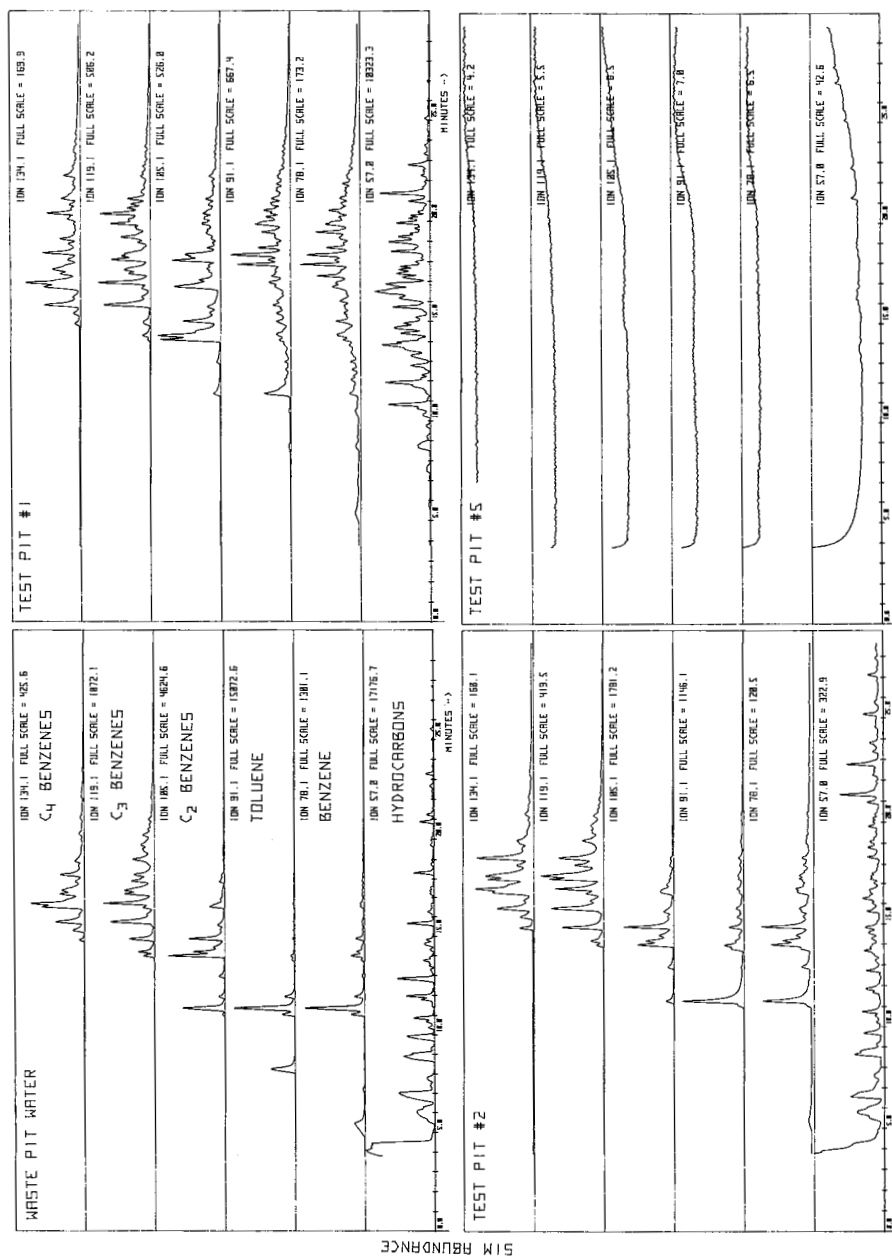 WASTE PIT WATER
ION 134.1 FULL SCALE = 425.6
C4 BENZENES
ION 119.1 FULL SCALE = 1072.1
C3 BENZENES
ION 105.1 FULL SCALE = 4624.6
C2 BENZENES
ION 91.1 FULL SCALE = 15072.6
TOLUENE
ION 78.1 FULL SCALE = 1301.1
BENZENE
ION 57.0 FULL SCALE = 17176.7
HYDROCARBONS
0.0 5.0 10.0 15.0 20.0 25.0
MINUTES -->
TEST PIT #1
ION 134.1 FULL SCALE = 169.9
ION 119.1 FULL SCALE = 506.2
ION 105.1 FULL SCALE = 526.0
ION 91.1 FULL SCALE = 667.4
ION 78.1 FULL SCALE = 173.2
ION 57.0 FULL SCALE = 10323.3
0.0 5.0 10.0 15.0 20.0 25.0
MINUTES -->
TEST PIT #2
ION 134.1 FULL SCALE = 160.1
ION 119.1 FULL SCALE = 419.5
ION 105.1 FULL SCALE = 1781.2
ION 91.1 FULL SCALE = 1146.1
ION 78.1 FULL SCALE = 120.5
ION 57.0 FULL SCALE = 322.9
0.0 5.0 10.0 15.0 20.0 25.0
TEST PIT #5
ION 134.1 FULL SCALE = 4.2
ION 119.1 FULL SCALE = 5.5
ION 105.1 FULL SCALE = 6.5
ION 91.1 FULL SCALE = 7.0
ION 78.1 FULL SCALE = 6.5
ION 57.0 FULL SCALE = 42.6
0.0 5.0 10.0 15.0 20.0 25.0
SIM ABUNDANCE